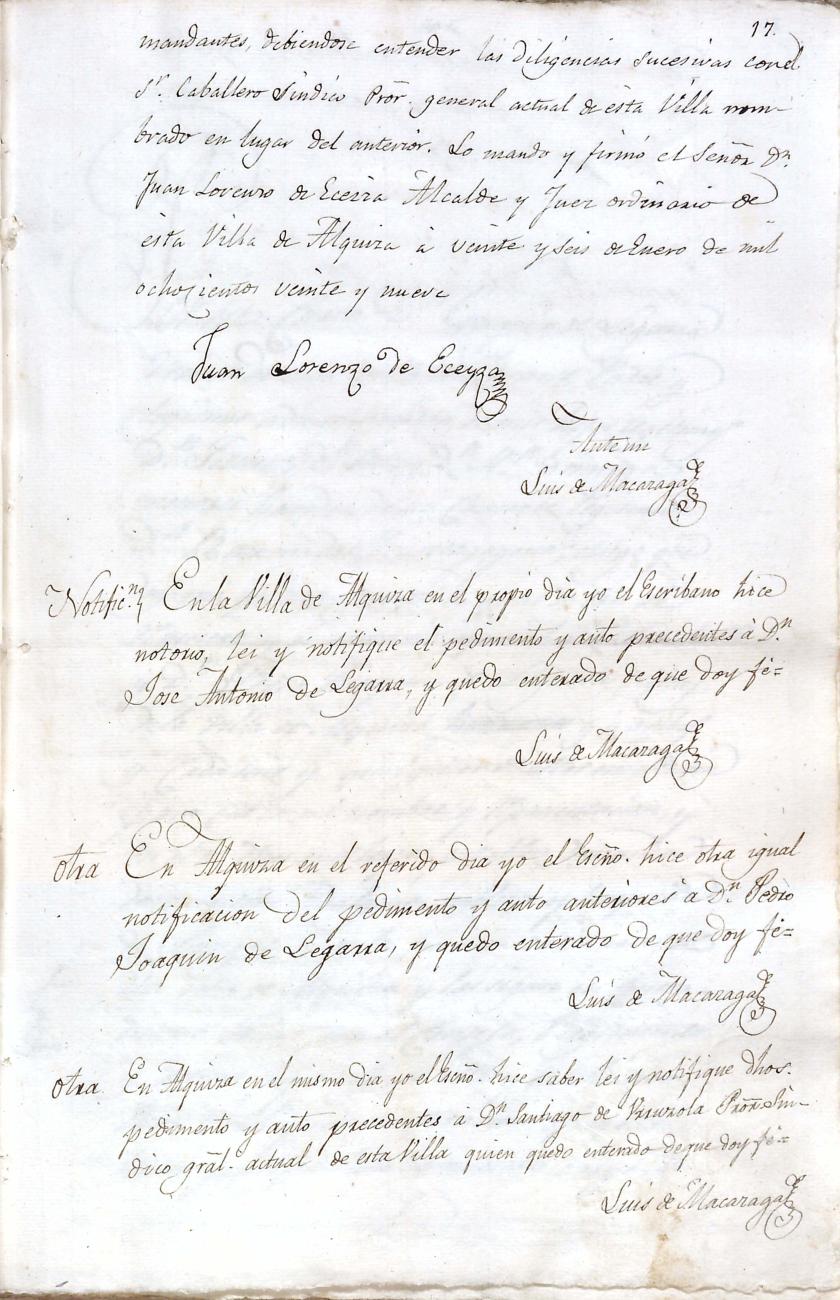 17.
mandantes, debiendose entender las diligencias sucesivas con el
Sr. Caballero Sindico Pror. general actual de ésta Villa nom-
brado en lugar del anterior. Lo mando y firmó el Señor Dn.
Juan Lorenzo de Eceiza Alcalde y Juez ordinario de
ésta Villa de Alquiza á veinte y seis de Enero de mil
ochozientos veinte y nueve
Juan Lorenzo de Eceyza
Ante mi
Luis de Macazaga
Notific.n En la Villa de Alquiza en el propio dia yo el Escribano hice
notorio, lei y notifique el pedimento y auto precedentes á Dn.
Jose Antonio de Legarra, y quedo enterado de que doy fé=
Luis de Macazaga
otra En Alquiza en el referido dia yo el Escño. hice otra igual
notificacion del pedimento y auto anteriores á Dn. Pedro
Joaquin de Legarra, y quedo enterado de que doy fé=
Luis de Macazaga
otra En Alquiza en el mismo dia yo el Escño. hice saber lei y notifique dhos.
pedimento y auto precedentes á Dn. Santiago de Urruzola Pror. Sin-
dico gral. actual de esta Villa quien quedo enterado de que doy fé=
Luis de Macazaga